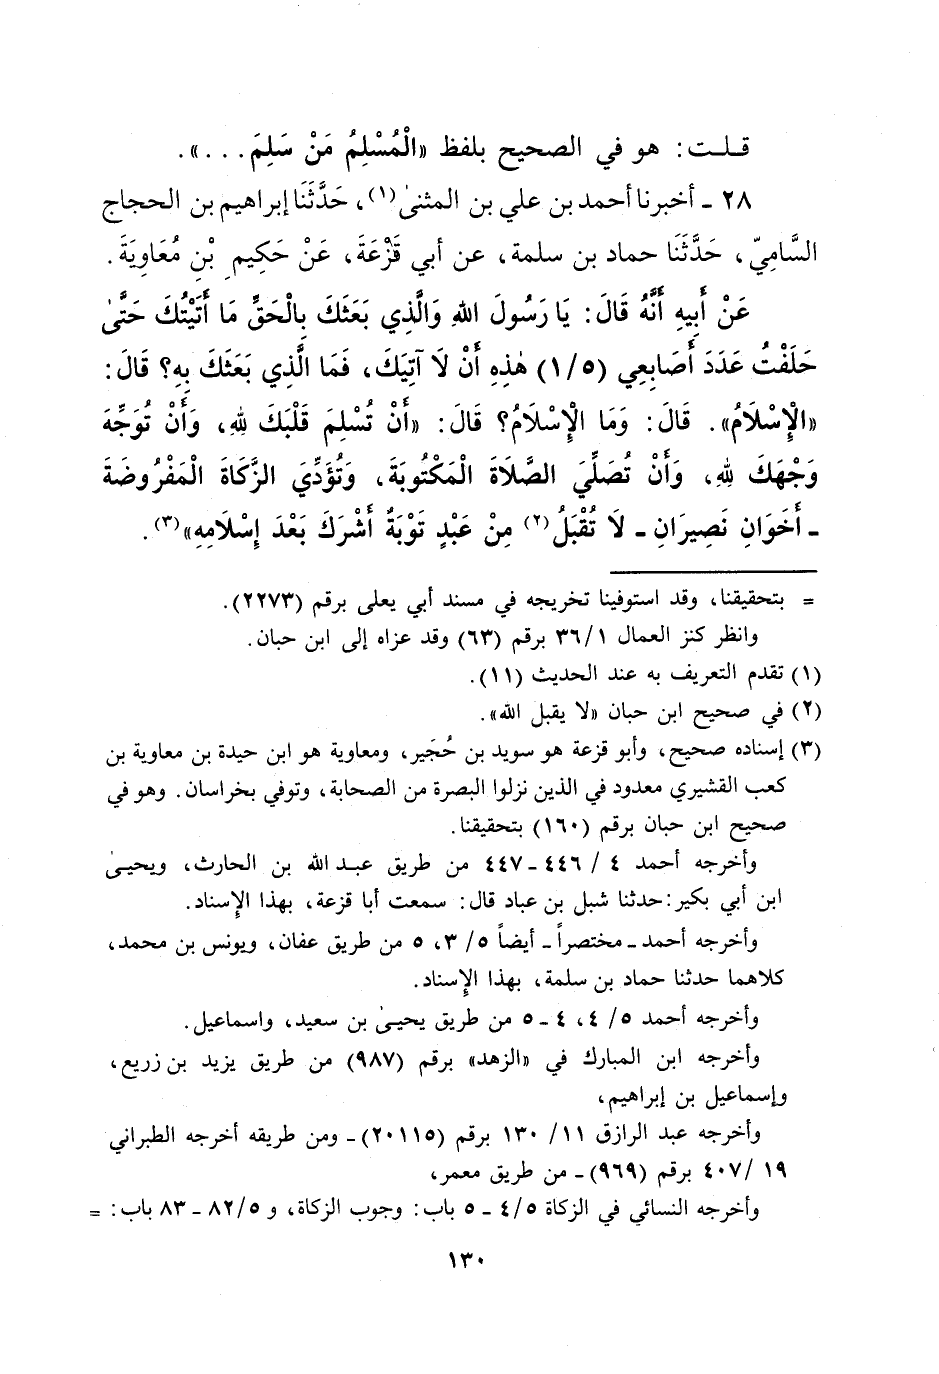 قلت: هو في الصحيح بلفظ «الْمُسْلِمُ مَنْ سَلِمَ . . .».
٢٨ ـ أخبرنا أحمد بن علي بن المثنىٰ(١)، حَدَّثَنَا إبراهيم بن الحجاج
السَّامِيّ، حَدَّثَنَا حماد بن سلمة، عن أبي قَزْعَةَ، عَنْ حَكِيمِ بْنِ مُعَاوِيَةَ.
عَنْ أَبِيهِ أَنَّهُ قَالَ: يَا رَسُولَ اللهِ وَالَّذِي بَعَثَكَ بِالْحَقِّ مَا أَتَيْتُكَ حَتَّىٰ
حَلَفْتُ عَدَدَ أَصَابِعِي (١/٥) هٰذِهِ أَنْ لَا آتِيَكَ، فَمَا الَّذِي بَعَثَكَ بِهِ؟ قَالَ:
«الْإِسْلَامُ». قَالَ: وَمَا الْإِسْلَامُ؟ قَالَ: «أَنْ تُسْلِمَ قَلْبَكَ لِلهِ، وَأَنْ تُوَجِّهَ
وَجْهَكَ لِلهِ، وَأَنْ تُصَلِّيَ الصَّلَاةَ الْمَكْتُوبَةَ، وَتُؤَدِّيَ الزَّكَاةَ الْمَفْرُوضَةَ
ـ أَخَوَانِ نَصِيرَانِ ـ لَا تُقْبَلُ(٢) مِنْ عَبْدٍ تَوْبَةٌ أَشْرَكَ بَعْدَ إِسْلَامِهِ»(٣).
= بتحقيقنا، وقد استوفينا تخريجه في مسند أبي يعلى برقم (٢٢٧٣).
وانظر كنز العمال ٣٦/١ برقم (٦٣) وقد عزاه إلى ابن حبان.
(١) تقدم التعريف به عند الحديث (١١).
(٢) في صحيح ابن حبان «لا يقبل الله».
(٣) إسناده صحيح، وأبو قزعة هو سويد بن حُجَير، ومعاوية هو ابن حيدة بن معاوية بن
كعب القشيري معدود في الذين نزلوا البصرة من الصحابة، وتوفي بخراسان. وهو في
صحيح ابن حبان برقم (١٦٠) بتحقيقنا.
وأخرجه أحمد ٤ / ٤٤٦ ـ ٤٤٧ من طريق عبد الله بن الحارث، ويحيىٰ
ابن أبي بكير: حدثنا شبل بن عباد قال: سمعت أبا قزعة، بهذا الإِسناد.
وأخرجه أحمد ـ مختصراً ـ أيضاً ٥/ ٣، ٥ من طريق عفان، ويونس بن محمد،
كلاهما حدثنا حماد بن سلمة، بهذا الإِسناد.
وأخرجه أحمد ٥/ ٤، ٤ ـ ٥ من طريق يحيىٰ بن سعيد، واسماعيل.
وأخرجه ابن المبارك في «الزهد» برقم (٩٨٧) من طريق يزيد بن زريع،
وإسماعيل بن إبراهيم،
وأخرجه عبد الرازق ١١/ ١٣٠ برقم (٢٠١١٥) ـ ومن طريقه أخرجه الطبراني
١٩ /٤٠٧ برقم (٩٦٩) ـ من طريق معمر،
وأخرجه النسائي في الزكاة ٤/٥ ـ ٥ باب: وجوب الزكاة، و ٨٢/٥ ـ ٨٣ باب: =
١٣٠